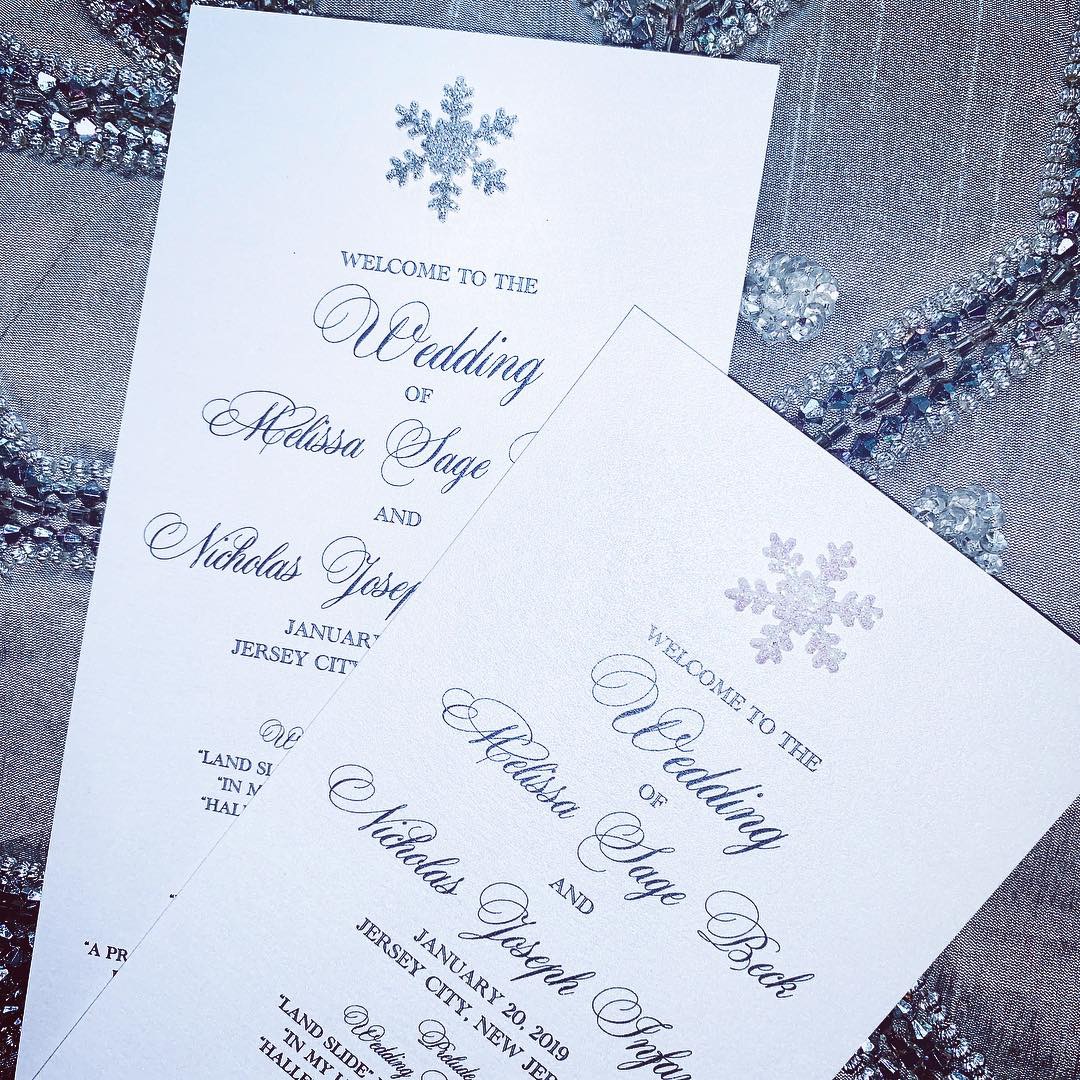 WELCOME TO THE
Wedding
OF
Melissa Sage
AND
Nicholas Josep
JANUAR
JERSEY CIT
W
"LAND SL
"IN M
"HAL
"A PR
WELCOME TO THE
Wedding
OF
Melissa Sage Beck
AND
Nicholas Joseph Infa
JANUARY 20, 2019
JERSEY CITY, NEW JER
Wedding Prelude
"LAND SLIDE"
"IN MY
"HALLE